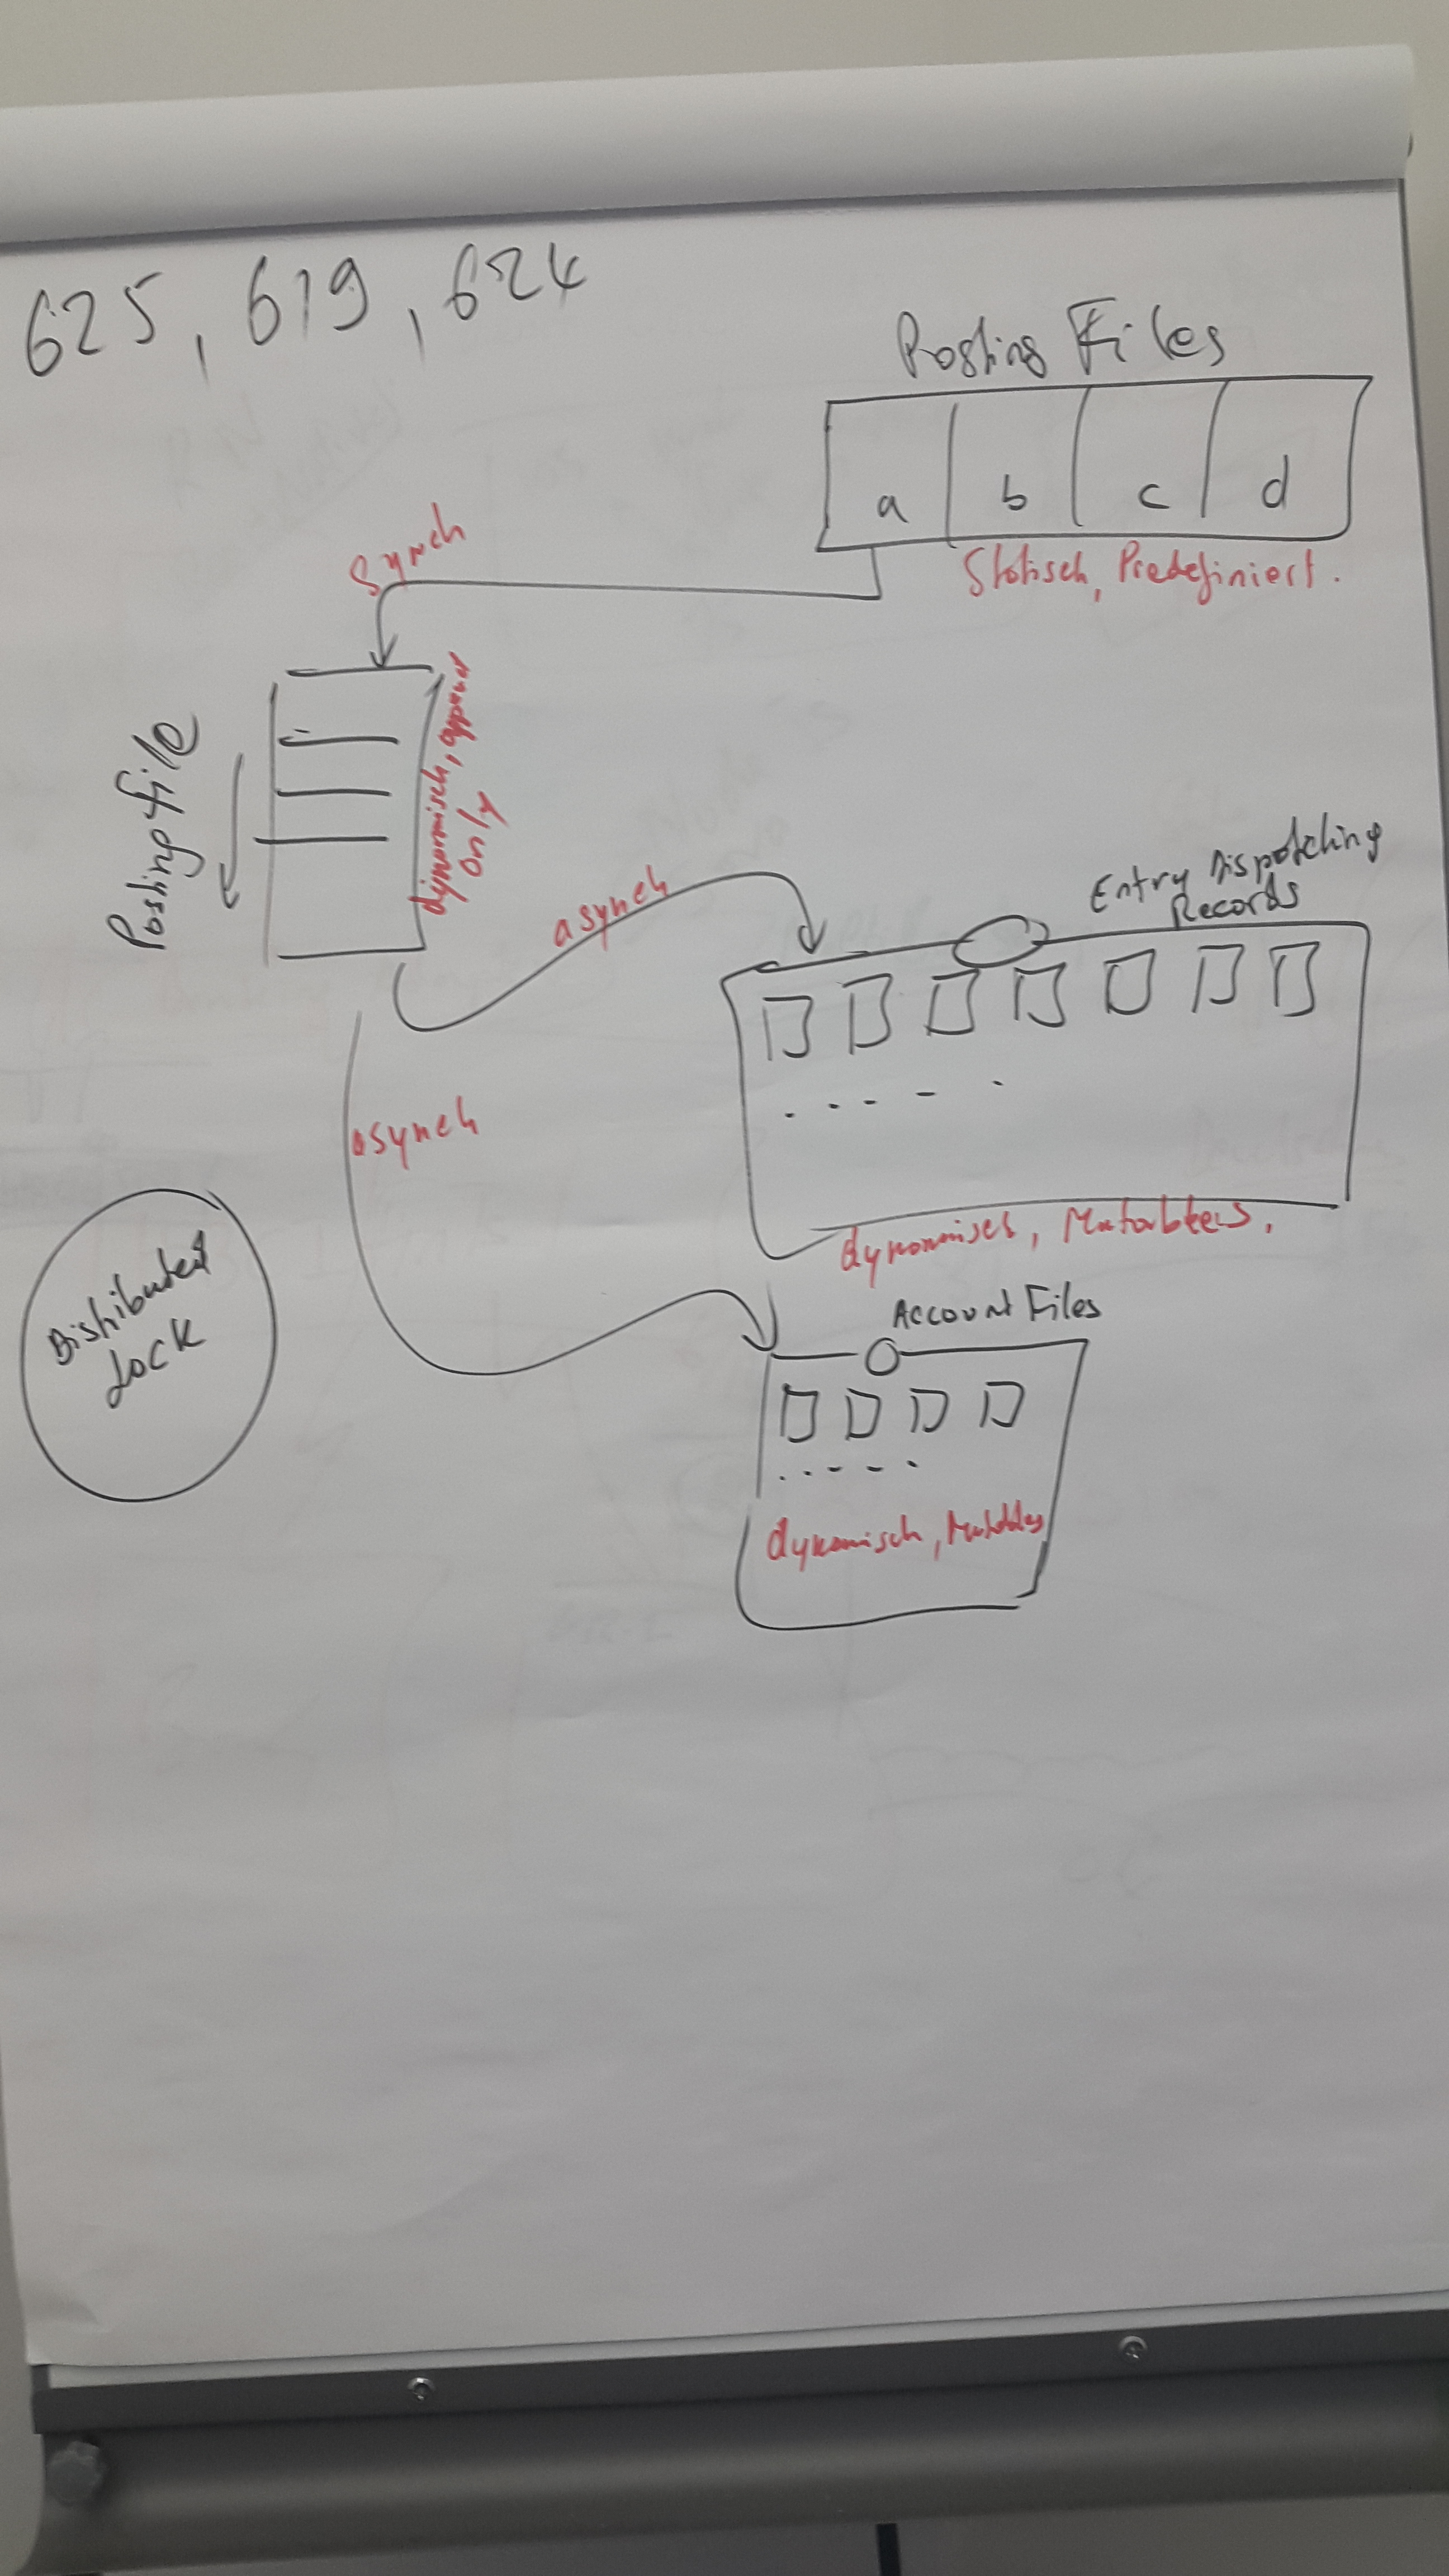 625, 619, 624
Posting Files
a b c d
Statisch, Predefiniert.
synch
Posting file
dynamisch, append
only
asynch
Entry Dispatching
Records
asynch
dynamisch,
Distributed
Lock
Account Files
dynamisch,